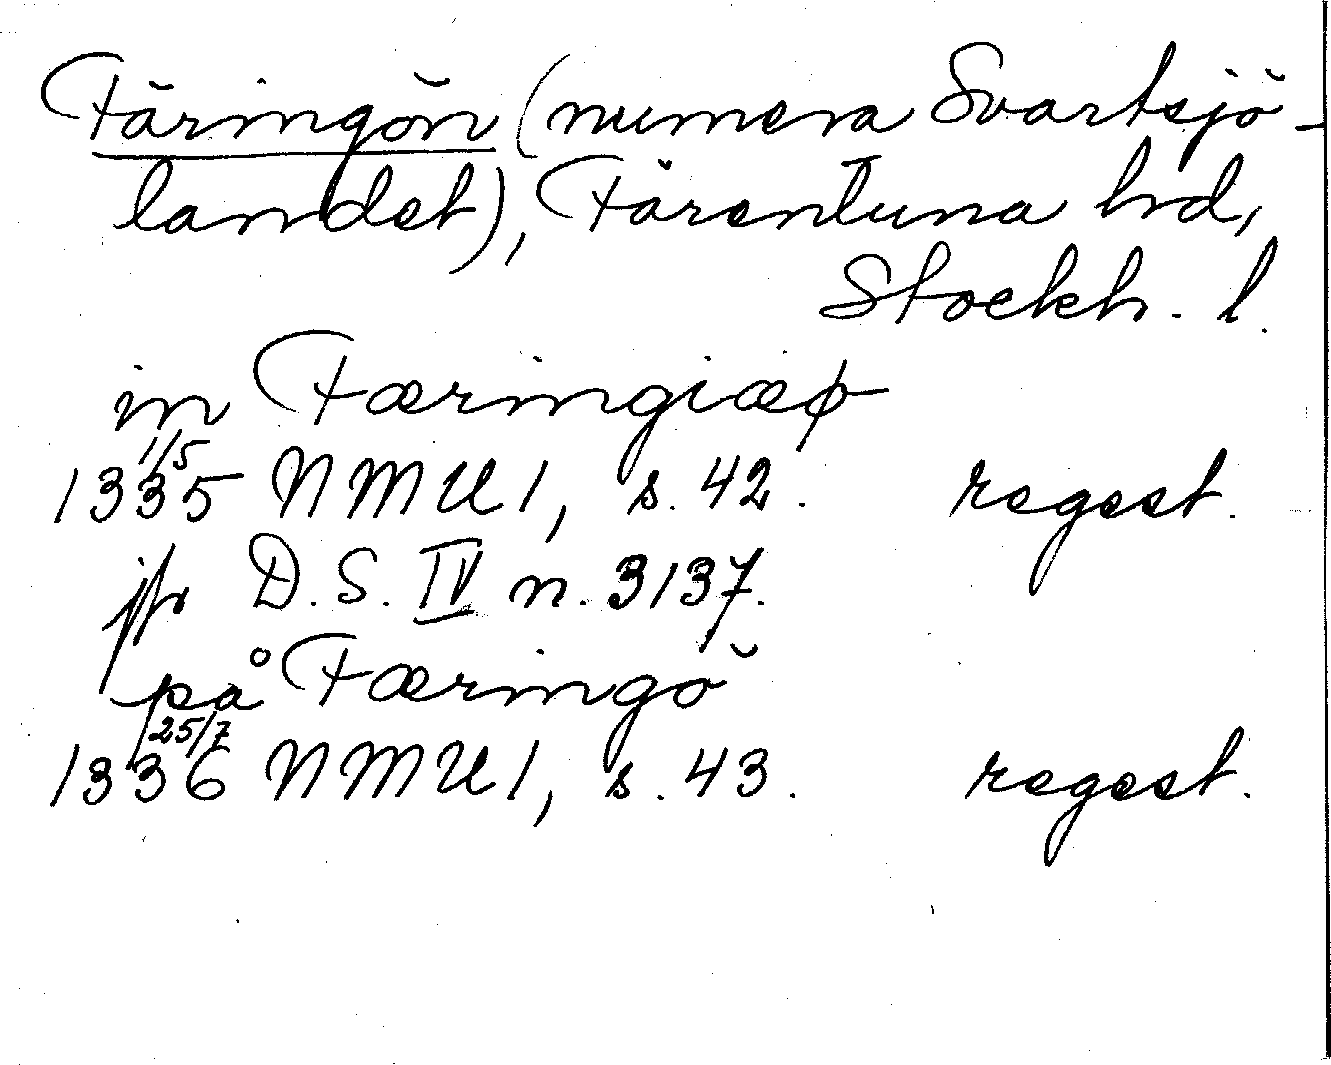 Färingön (numera Svartsjö-
landet), Färentuna hd,
Stockh. l.
in Færingiæø
1335 1/5 NMU 1, s. 42. regest.
jfr D.S. IV n. 3137.
på Færingö
1336 25/7 NMU 1, s. 43. regest.